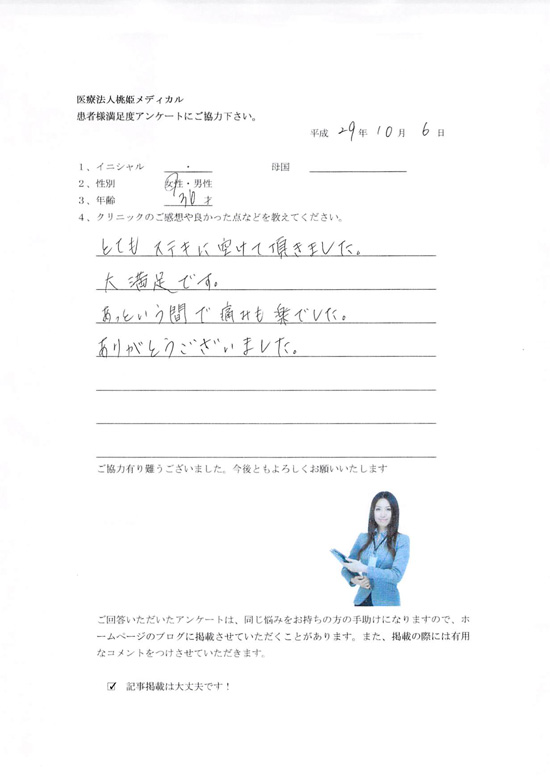 医療法人桃姫メディカル
患者様満足度アンケートにご協力下さい。
平成 29年 10月 6日
1、イニシャル ・ 母国
2、性別 女性・男性
3、年齢 30才
4、クリニックのご感想や良かった点などを教えてください。
とても ステキに空けて頂きました。
大満足です。
あっという間で痛みも楽でした。
ありがとうございました。
ご協力有り難うございました。今後ともよろしくお願いいたします
ご回答いただいたアンケートは、同じ悩みをお持ちの方の手助けになりますので、ホ
ームページのブログに掲載させていただくことがあります。また、掲載の際には有用
なコメントをつけさせていただきます。
☑ 記事掲載は大丈夫です！